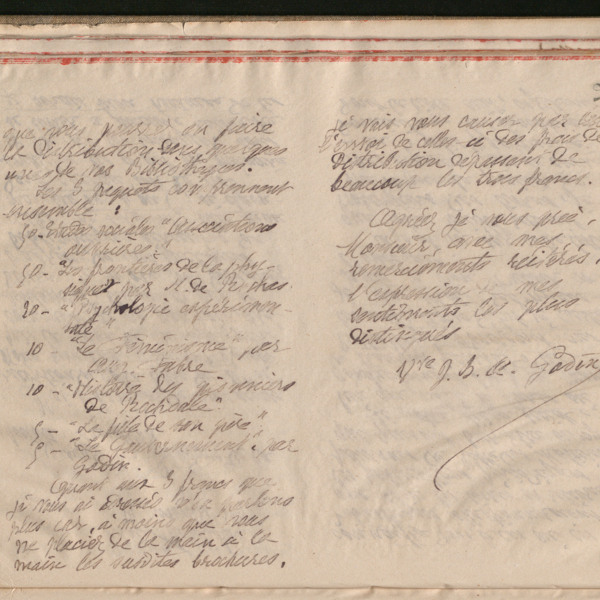 que vous pensez en faire
la distribution dans quelques
unes de vos Bibliothèques.
Les 3 paquets comprennent
ensemble :
50 - Etudes sociales "Associations
ouvrières"
50 - "Les frontières de la phy-
sique" par M. de Rochas
20 - "Psychologie expérimen-
tale"
10 - "Le Féminisme" par
Aug. Fabre
10 - "Histoire des pionniers
de Rochdale"
5 - "La fille de son père"
5 - "Le Gouvernement" par
Godin.
Quant aux 3 francs que
je vous ai n'en parlons
plus car, à moins que vous
ne placiez de la main à la
main les susdites brochures,
je vais vous causer par
l'envoi de celles-ci des frais de
distribution dépassant de
beaucoup les trois francs.
Agréez, je vous prie,
Monsieur, avec mes
remerciements réitérés,
l'expression de mes
sentiments les plus
distingués
Vve J. B. A. Godin